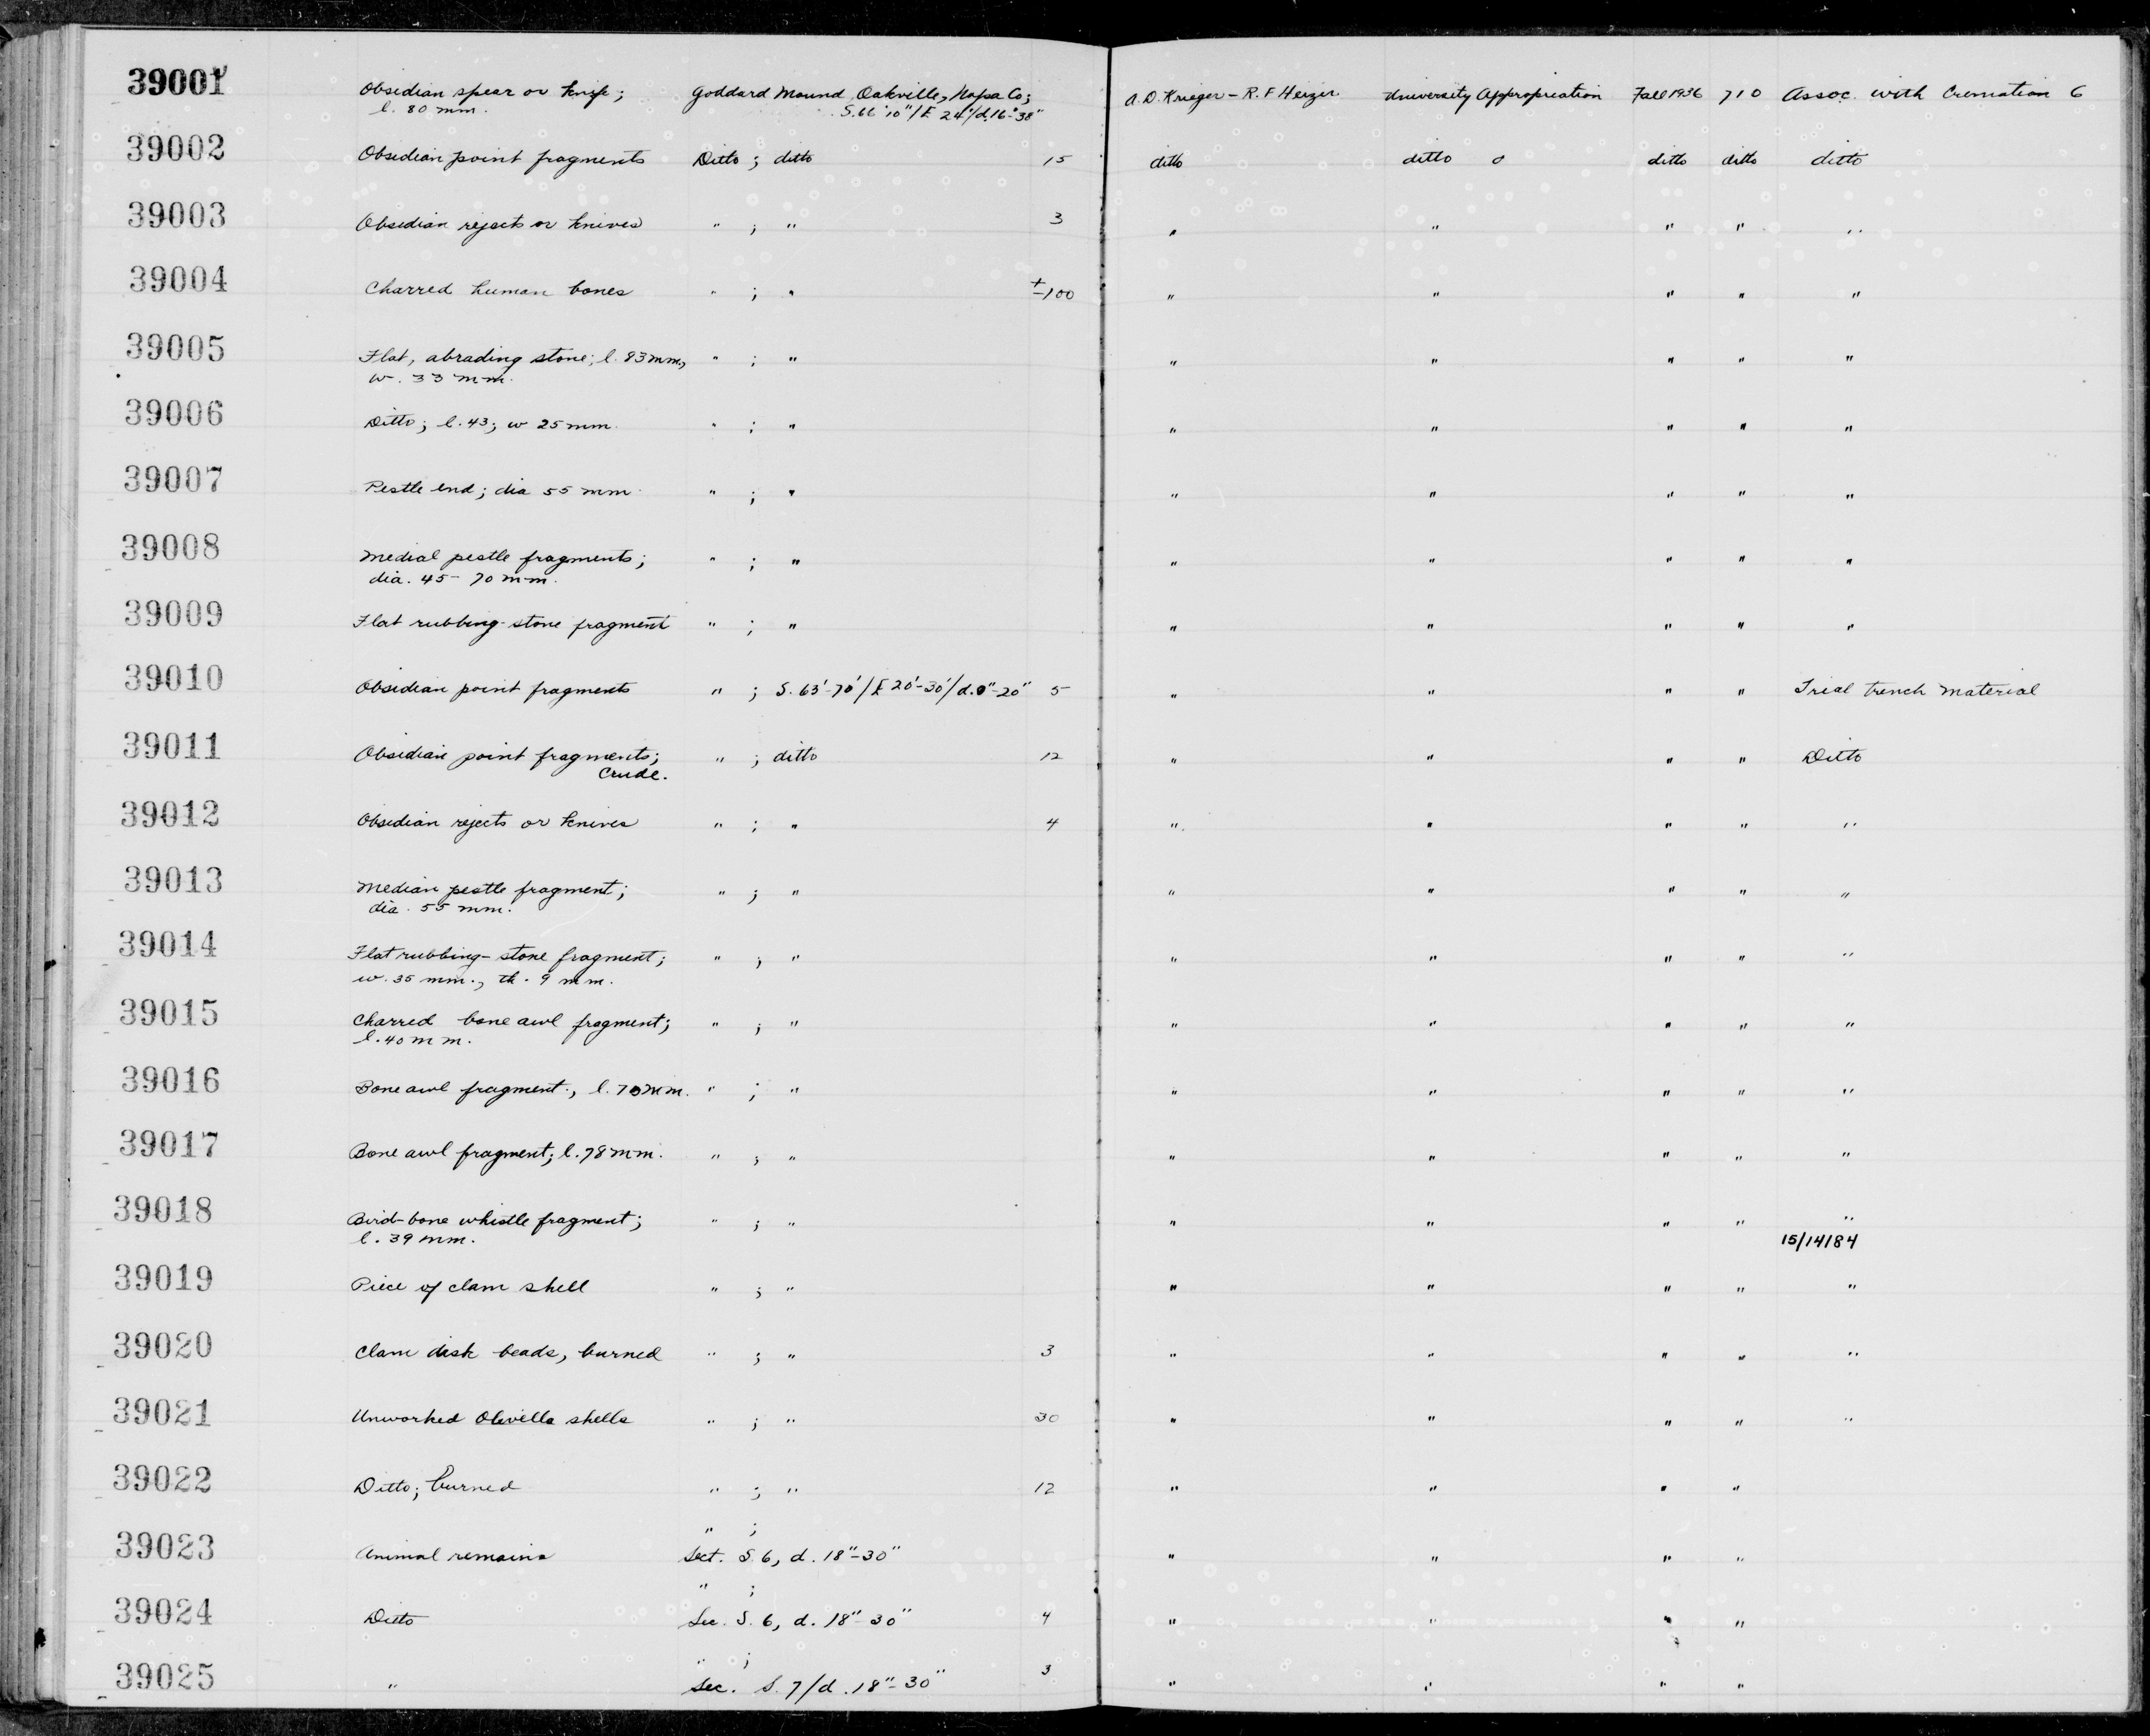 39001 Obsidian spear or knife; Goddard Mound, Oakville, Napa Co; A.D. Krieger - R.F. Heizer University Appropriation Fall 1936 710 Assoc. with Cremation 6
l. 80 mm. S.66'10"/E 24'/d.16"-38"
39002 Obsidian point fragments Ditto ; ditto 15 ditto ditto ditto ditto ditto
39003 Obsidian rejects or knives " ; " 3 " " " " "
39004 Charred human bones " ; " ±100 " " " " "
39005 Flat, abrading stone; l. 83 mm., " ; " " " " " "
w. 33 mm.
39006 Ditto; l. 43; w 25 mm. " ; " " " " " "
39007 Pestle end; dia 55 mm. " ; " " " " " "
39008 Medial pestle fragments; " ; " " " " " "
dia. 45-70 mm.
39009 Flat rubbing-stone fragment " ; " " " " " "
39010 Obsidian point fragments " ; S. 63'-70'/E 20'-30'/d. 0"-20" 5 " " " " Trial trench material
39011 Obsidian point fragments; " ; ditto 12 " " " " Ditto
Crude.
39012 Obsidian rejects or knives " ; " 4 " " " " "
39013 Median pestle fragment; " ; " " " " " "
dia. 55 mm.
39014 Flat rubbing-stone fragment; " ; " " " " " "
w. 35 mm., th. 9 mm.
39015 Charred bone awl fragment; " ; " " " " " "
l. 40 mm.
39016 Bone awl fragment; l. 70 mm. " ; " " " " " "
39017 Bone awl fragment; l. 78 mm. " ; " " " " " "
39018 Bird-bone whistle fragment; " ; " " " " " "
l. 39 mm. 15/14184
39019 Piece of clam shell " ; " " " " " "
39020 Clam disk beads, burned " ; " 3 " " " " "
39021 Unworked Olivella shells " ; " 30 " " " " "
39022 Ditto; burned " ; " 12 " " " "
" ;
39023 Animal remains Sect. S. 6, d. 18"-30" " " " "
" ;
39024 Ditto Sec. S. 6, d. 18"-30" 4 " " " "
" ;
39025 " Sec. S. 7/d. 18"-30" 3 " " " "